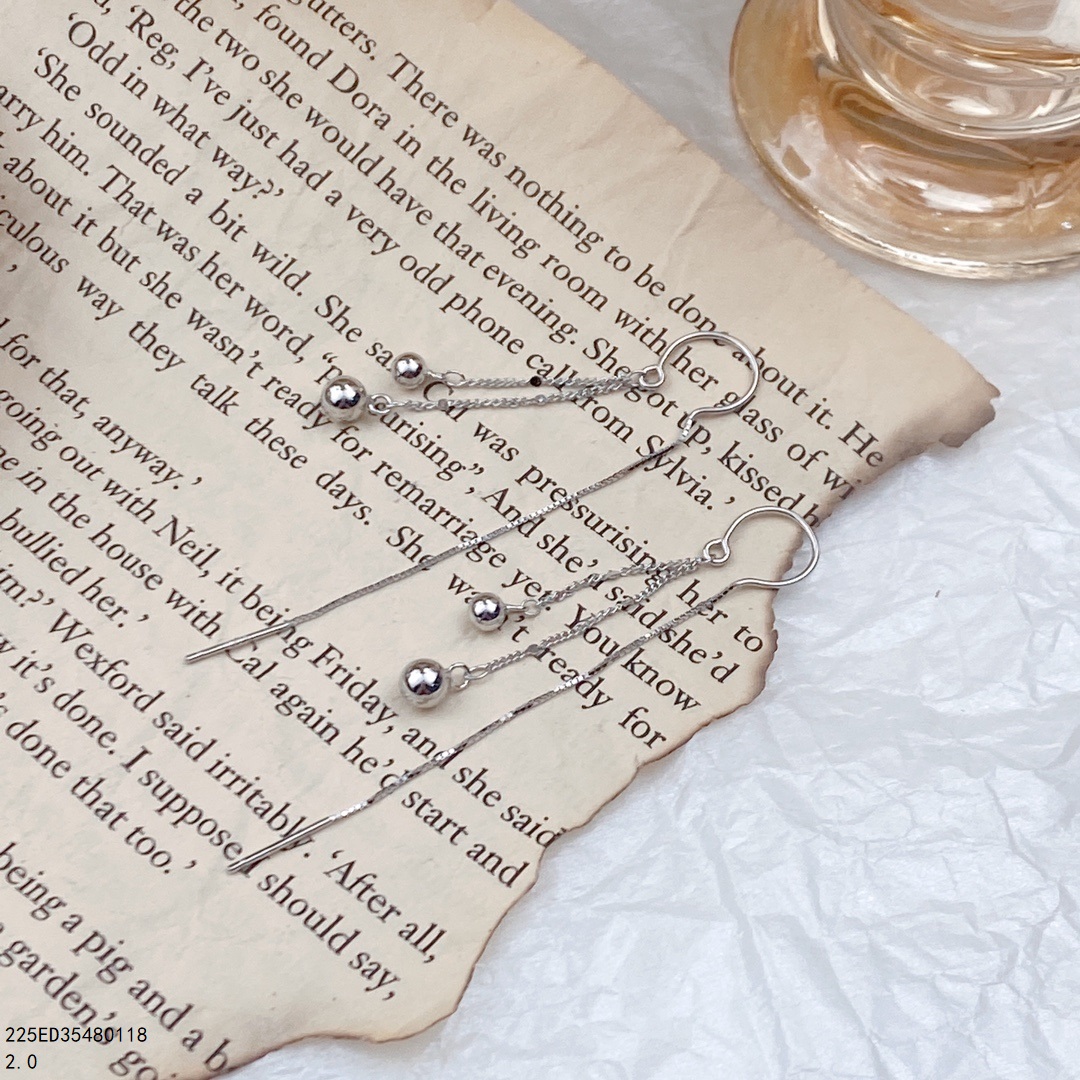 gutters. There was nothing to be done about it. He
found Dora in the living room with her glass of wi
the two she would have that evening. She got up, kissed h
'Reg, I've just had a very odd phone call from Sylvia.'
'Odd in what way?'
'She sounded a bit wild. She said Cal was pressurising her to
arry him. That was her word, "pressurising", And she'd said she'd
about it but she wasn't ready for remarriage yet. You know
culous way they talk these days. She wasn't ready for
for that, anyway.'
going out with Neil, it being Friday, and she said
e in the house with Cal again he'd start and
bullied her.'
im?' Wexford said irritably. 'After all,
w it's done. I suppose I should say,
's done that too.'
being a pig and a b
garden's go
225ED35480118
2.0